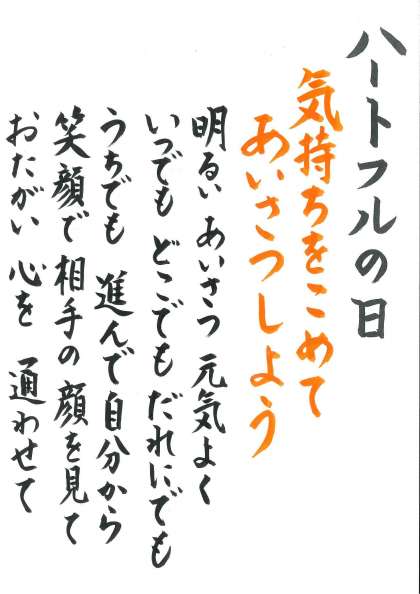 ハートフルの日
気持ちをこめて
あいさつしよう
明るい あいさつ 元気よく
いつでも どこでも だれにでも
うちでも 進んで自分から
笑顔で 相手の 顔を見て
おたがい 心を 通わせて